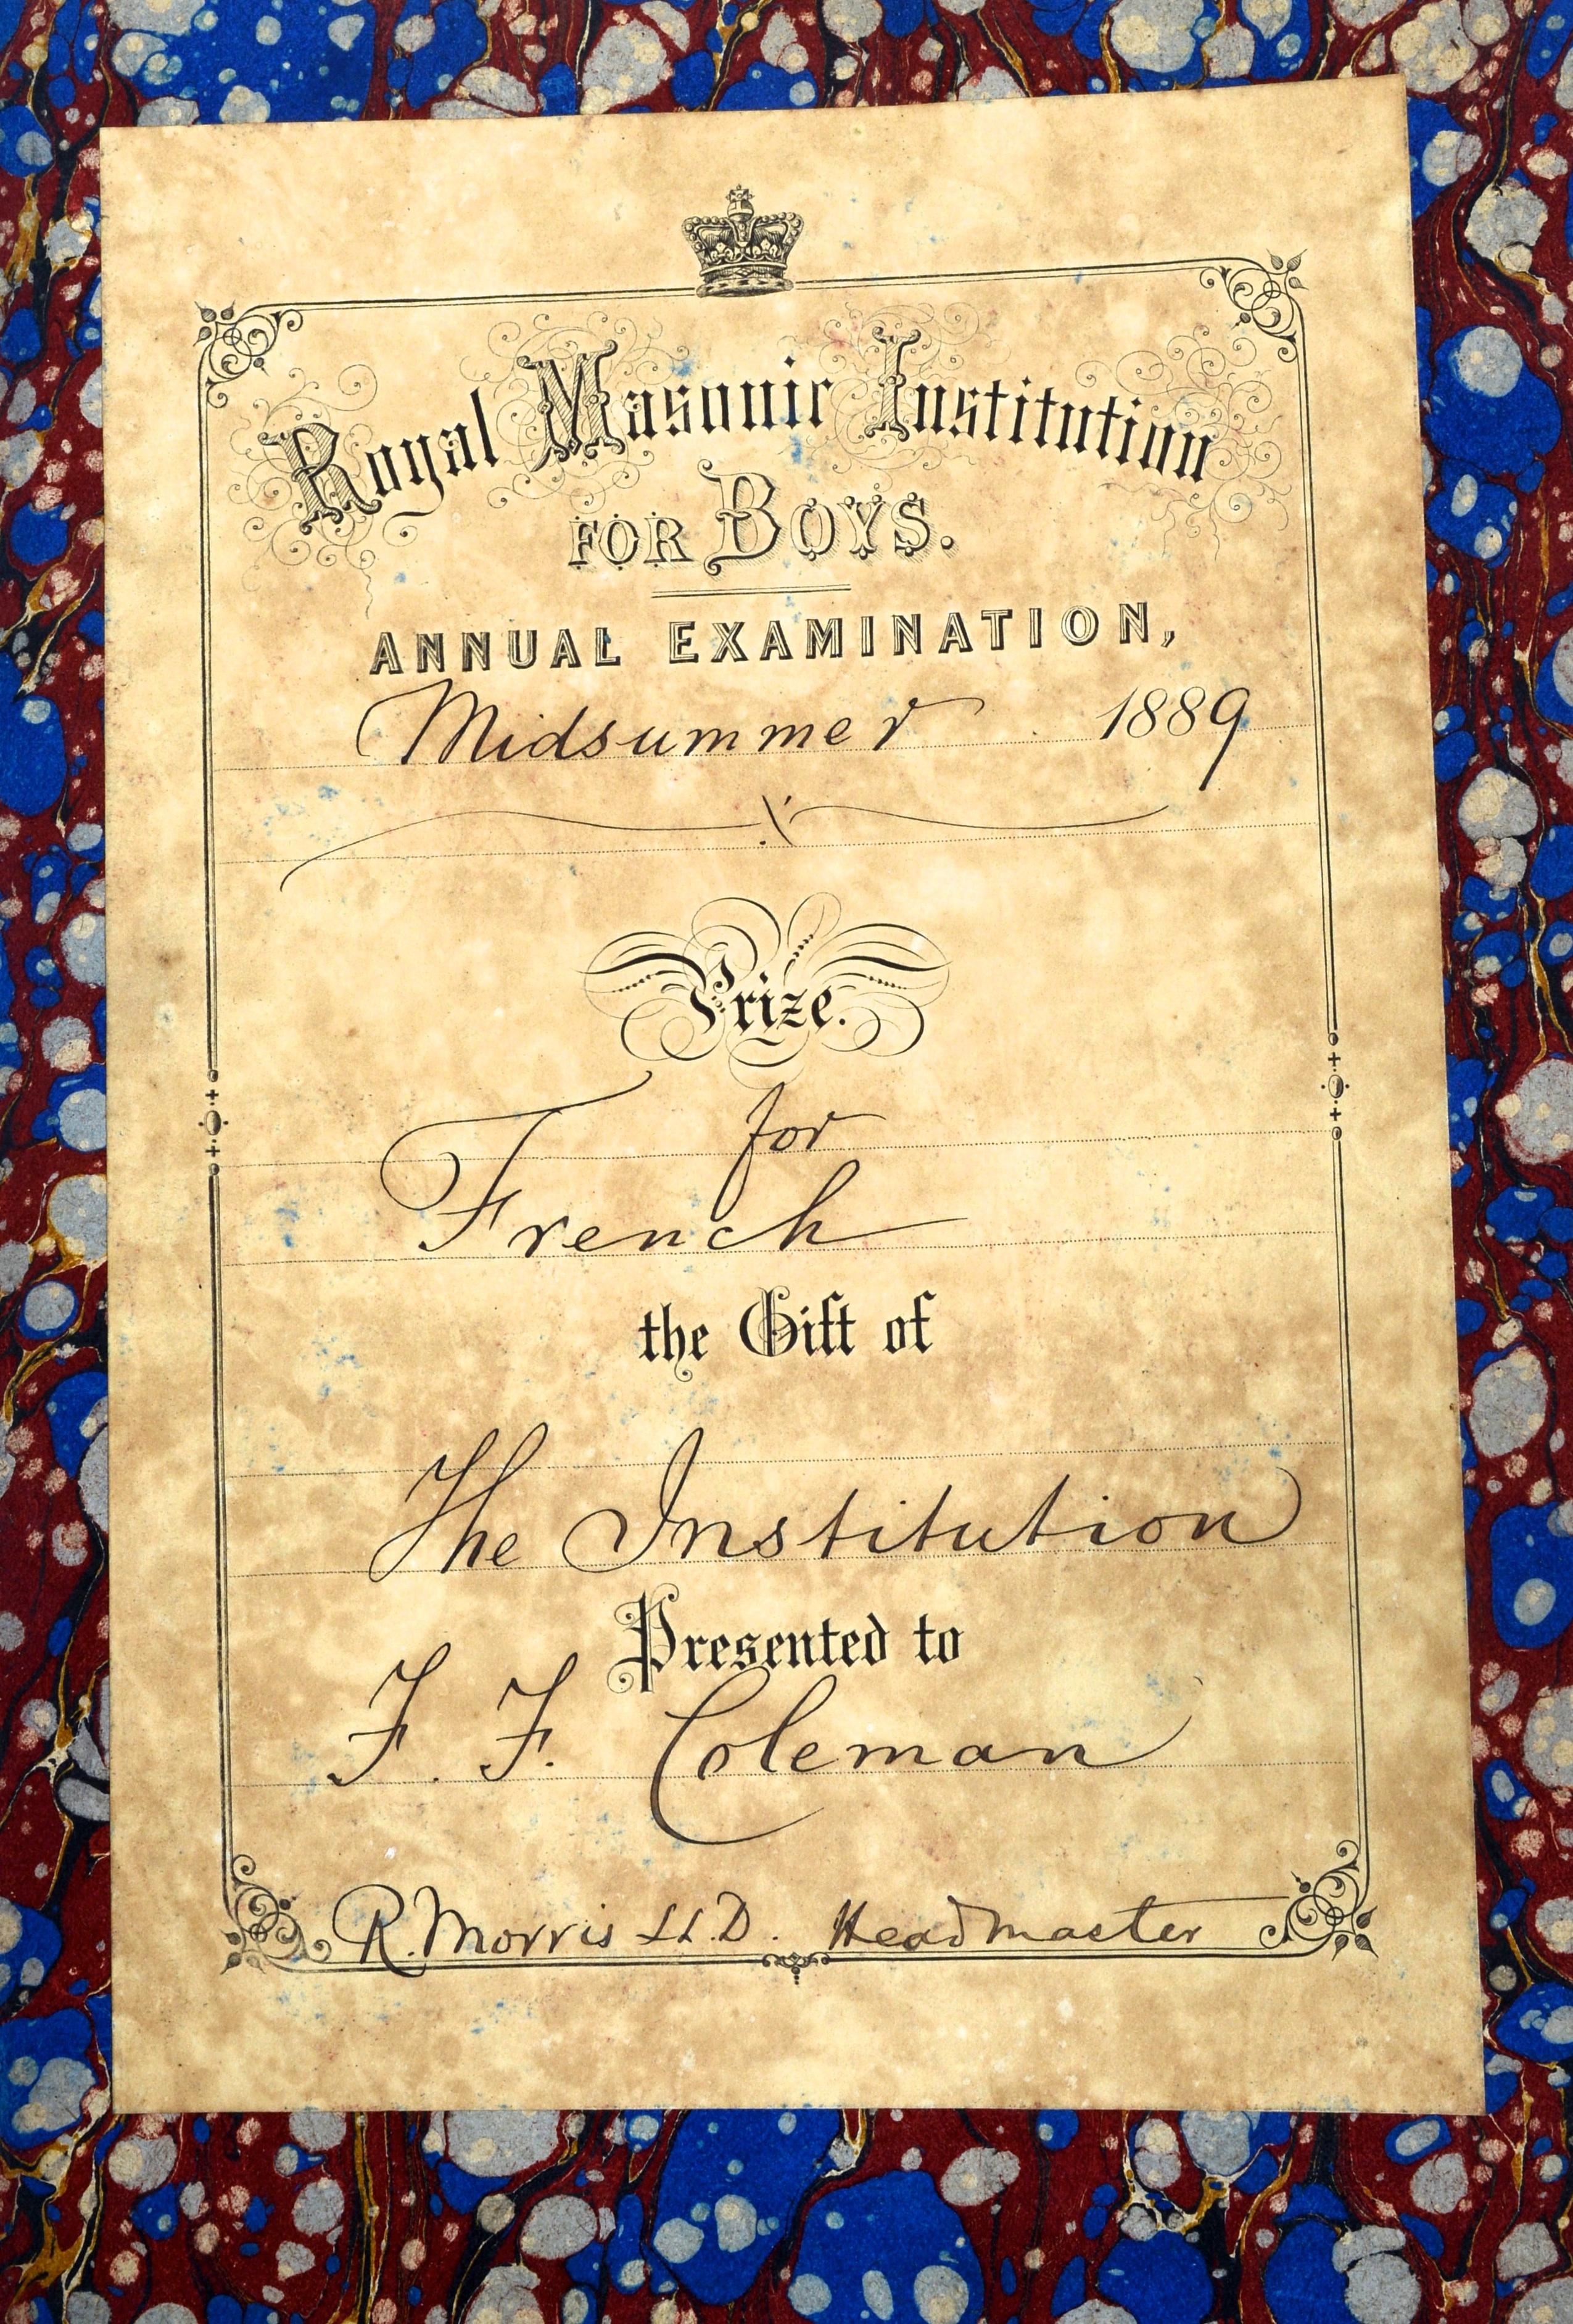 Royal Masonic Institution
FOR BOYS.
ANNUAL EXAMINATION,
Midsummer 1889
Prize.
for
French
the Gift of
The Institution
Presented to
F. F. Coleman
R. Morris LL.D. Headmaster